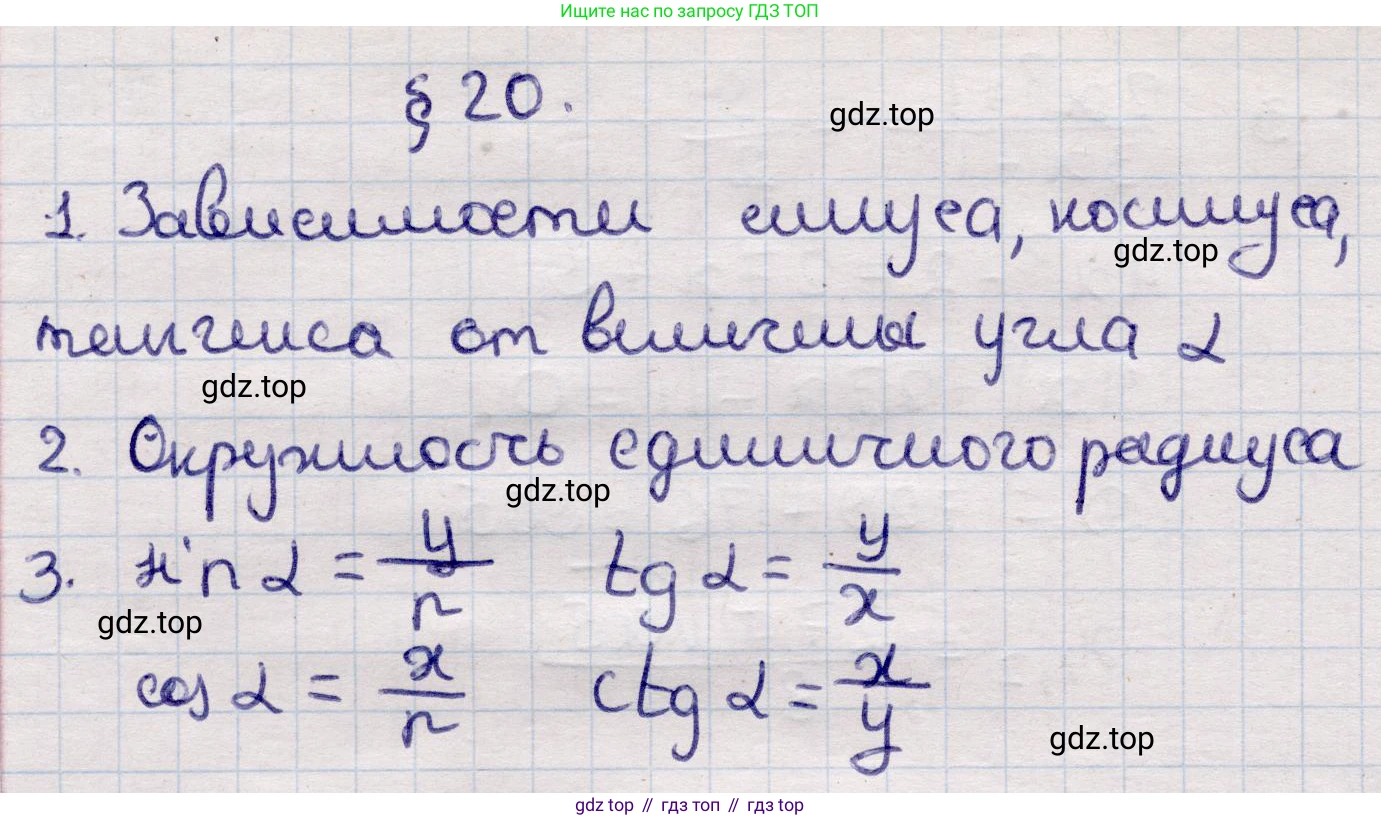 Ищите нас по запросу ГДЗ ТОП
§ 20.
gdz.top
1. Зависимости синуса, косинуса,
gdz.top
тангенса от величины угла α
gdz.top
2. Окружность единичного радиуса
gdz.top
3. sin α = y/r tg α = y/x
gdz.top
cos α = x/r ctg α = x/y
gdz.top
gdz top // гдз топ // gdz top